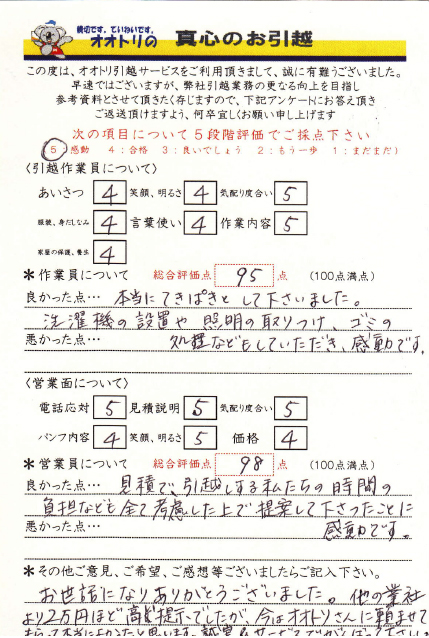 親切です。ていねいです。
オオトリの 真心のお引越
この度は、オオトリ引越サービスをご利用頂きまして、誠に有難うございました。
早速ではございますが、弊社引越業務の更なる向上を目指し
参考資料とさせて頂きたく存じますので、下記アンケートにお答え頂き
ご返送頂けますよう、何卒宜しくお願い申し上げます
次の項目について5段階評価でご採点下さい
5:感動 4:合格 3:良いでしょう 2:もう一歩 1:まだまだ)
〈引越作業員について〉
あいさつ 4 笑顔、明るさ 4 気配り度合い 5
服装、身だしなみ 4 言葉使い 4 作業内容 5
家屋の保護、養生 4
＊作業員について 総合評価点 95 点 (100点満点)
良かった点… 本当にてきぱきとして下さいました。
洗濯機の設置や照明の取りつけ、ゴミの
悪かった点… 処理などもしていただき、感動です。
〈営業面について〉
電話応対 5 見積説明 5 気配り度合い 5
パンフ内容 4 笑顔、明るさ 5 価格 4
＊営業員について 総合評価点 98 点 (100点満点)
良かった点… 見積で、引越しする私たちの時間の
負担なども全て考慮した上で提案して下さったことに
悪かった点… 感動です。
＊その他ご意見、ご希望、ご感想等ございましたらご記入下さい。
お世話になりありがとうございました。他の業社
より2万円ほど高い提示でしたが、今はオオトリさんに頼ませて
もらって本当によかったと思います。